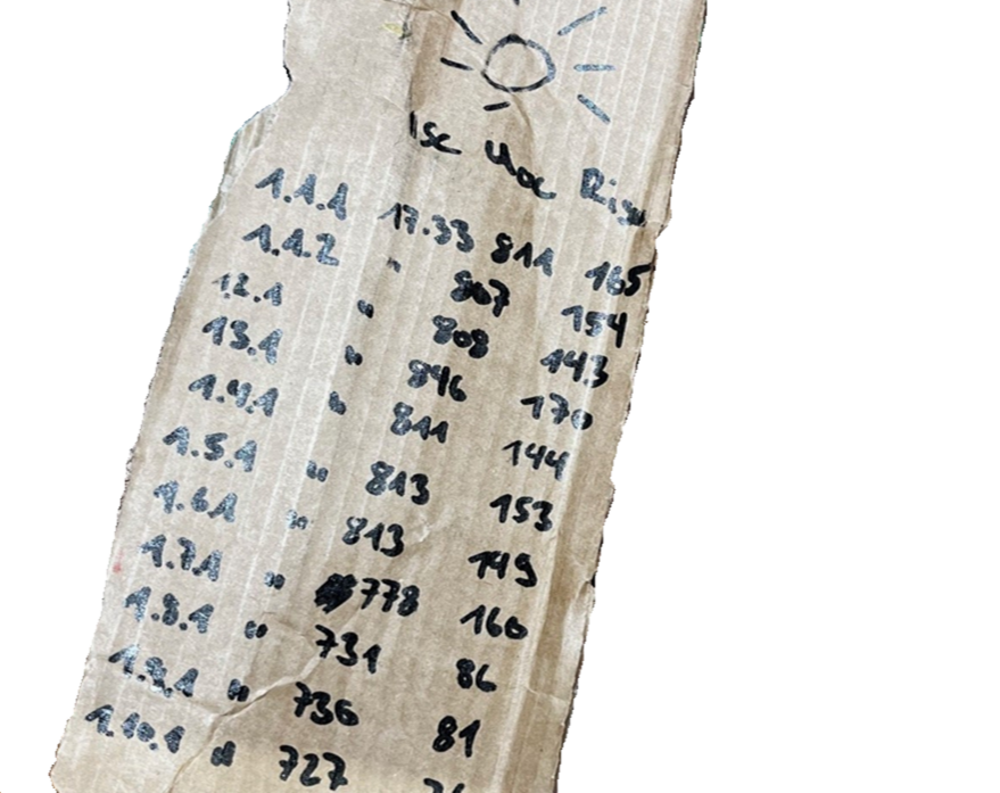 Isc Uoc Riso
1.1.1 17.33 811 165
1.1.2 " 807 154
1.2.1 " 808 143
1.3.1 " 846 170
1.4.1 " 811 144
1.5.1 " 813 153
1.6.1 " 813 149
1.7.1 " 778 160
1.8.1 " 731 86
1.9.1 " 736 81
1.10.1 " 727